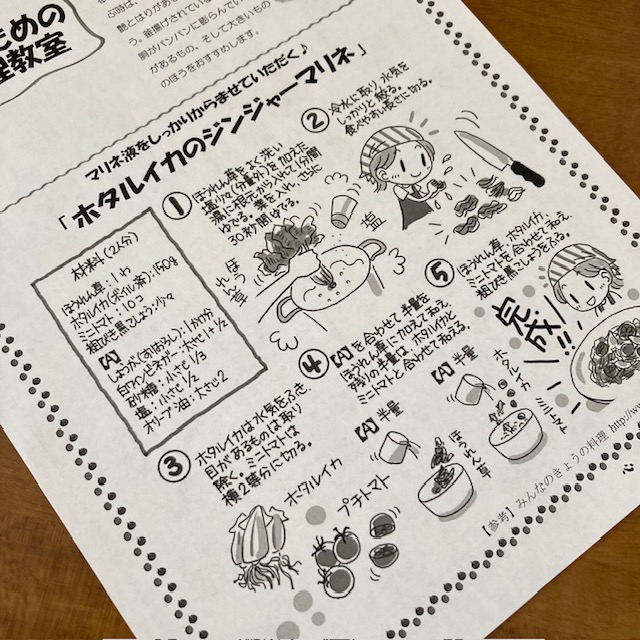 ための
理教室
ぶ時は、
艶とはりがあ
う。釜揚げされてい
胴がパンパンに膨らんでい
があるもの、そして大きいもの
のほうをおすすめします。
マリネ液をしっかりからませていただく♪
「ホタルイカのジンジャーマリネ」
材料(2人分)
ほうれん草:1わ
ホタルイカ(ボイル済):150g
ミニトマト:10コ
粗びき黒こしょう:少々
【A】
しょうが(すりおろし):1かけ分
白ワインビネガー:大さじ1と1/2
砂糖:小さじ1/3
塩:小さじ1/3
オリーブ油:大さじ2
①
ほうれん草はよく洗い
塩少々(分量外)を加えた
熱湯に根元から入れて1分間
ゆでる。葉を入れ、さらに
30秒間ゆでる。
ほうれん草
塩
②
冷水に取り、水気を
しっかりと絞る。
食べやすい長さに切る。
③
ホタルイカは水気をふき
目があるものは取り
除く。ミニトマトは
横2等分に切る。
ホタルイカ
プチトマト
④
【A】を合わせて半量を
ほうれん草に加えて和え、
残りの半量は、ホタルイカと
ミニトマトと合わせて和える。
【A】半量
ほうれん草
【A】半量
ホタルイカ
ミニトマト
⑤
ほうれん草、ホタルイカ、
ミニトマトを合わせて和え、
粗びき黒こしょうをふる。
完成!!
【参考】みんなのきょうの料理 http://